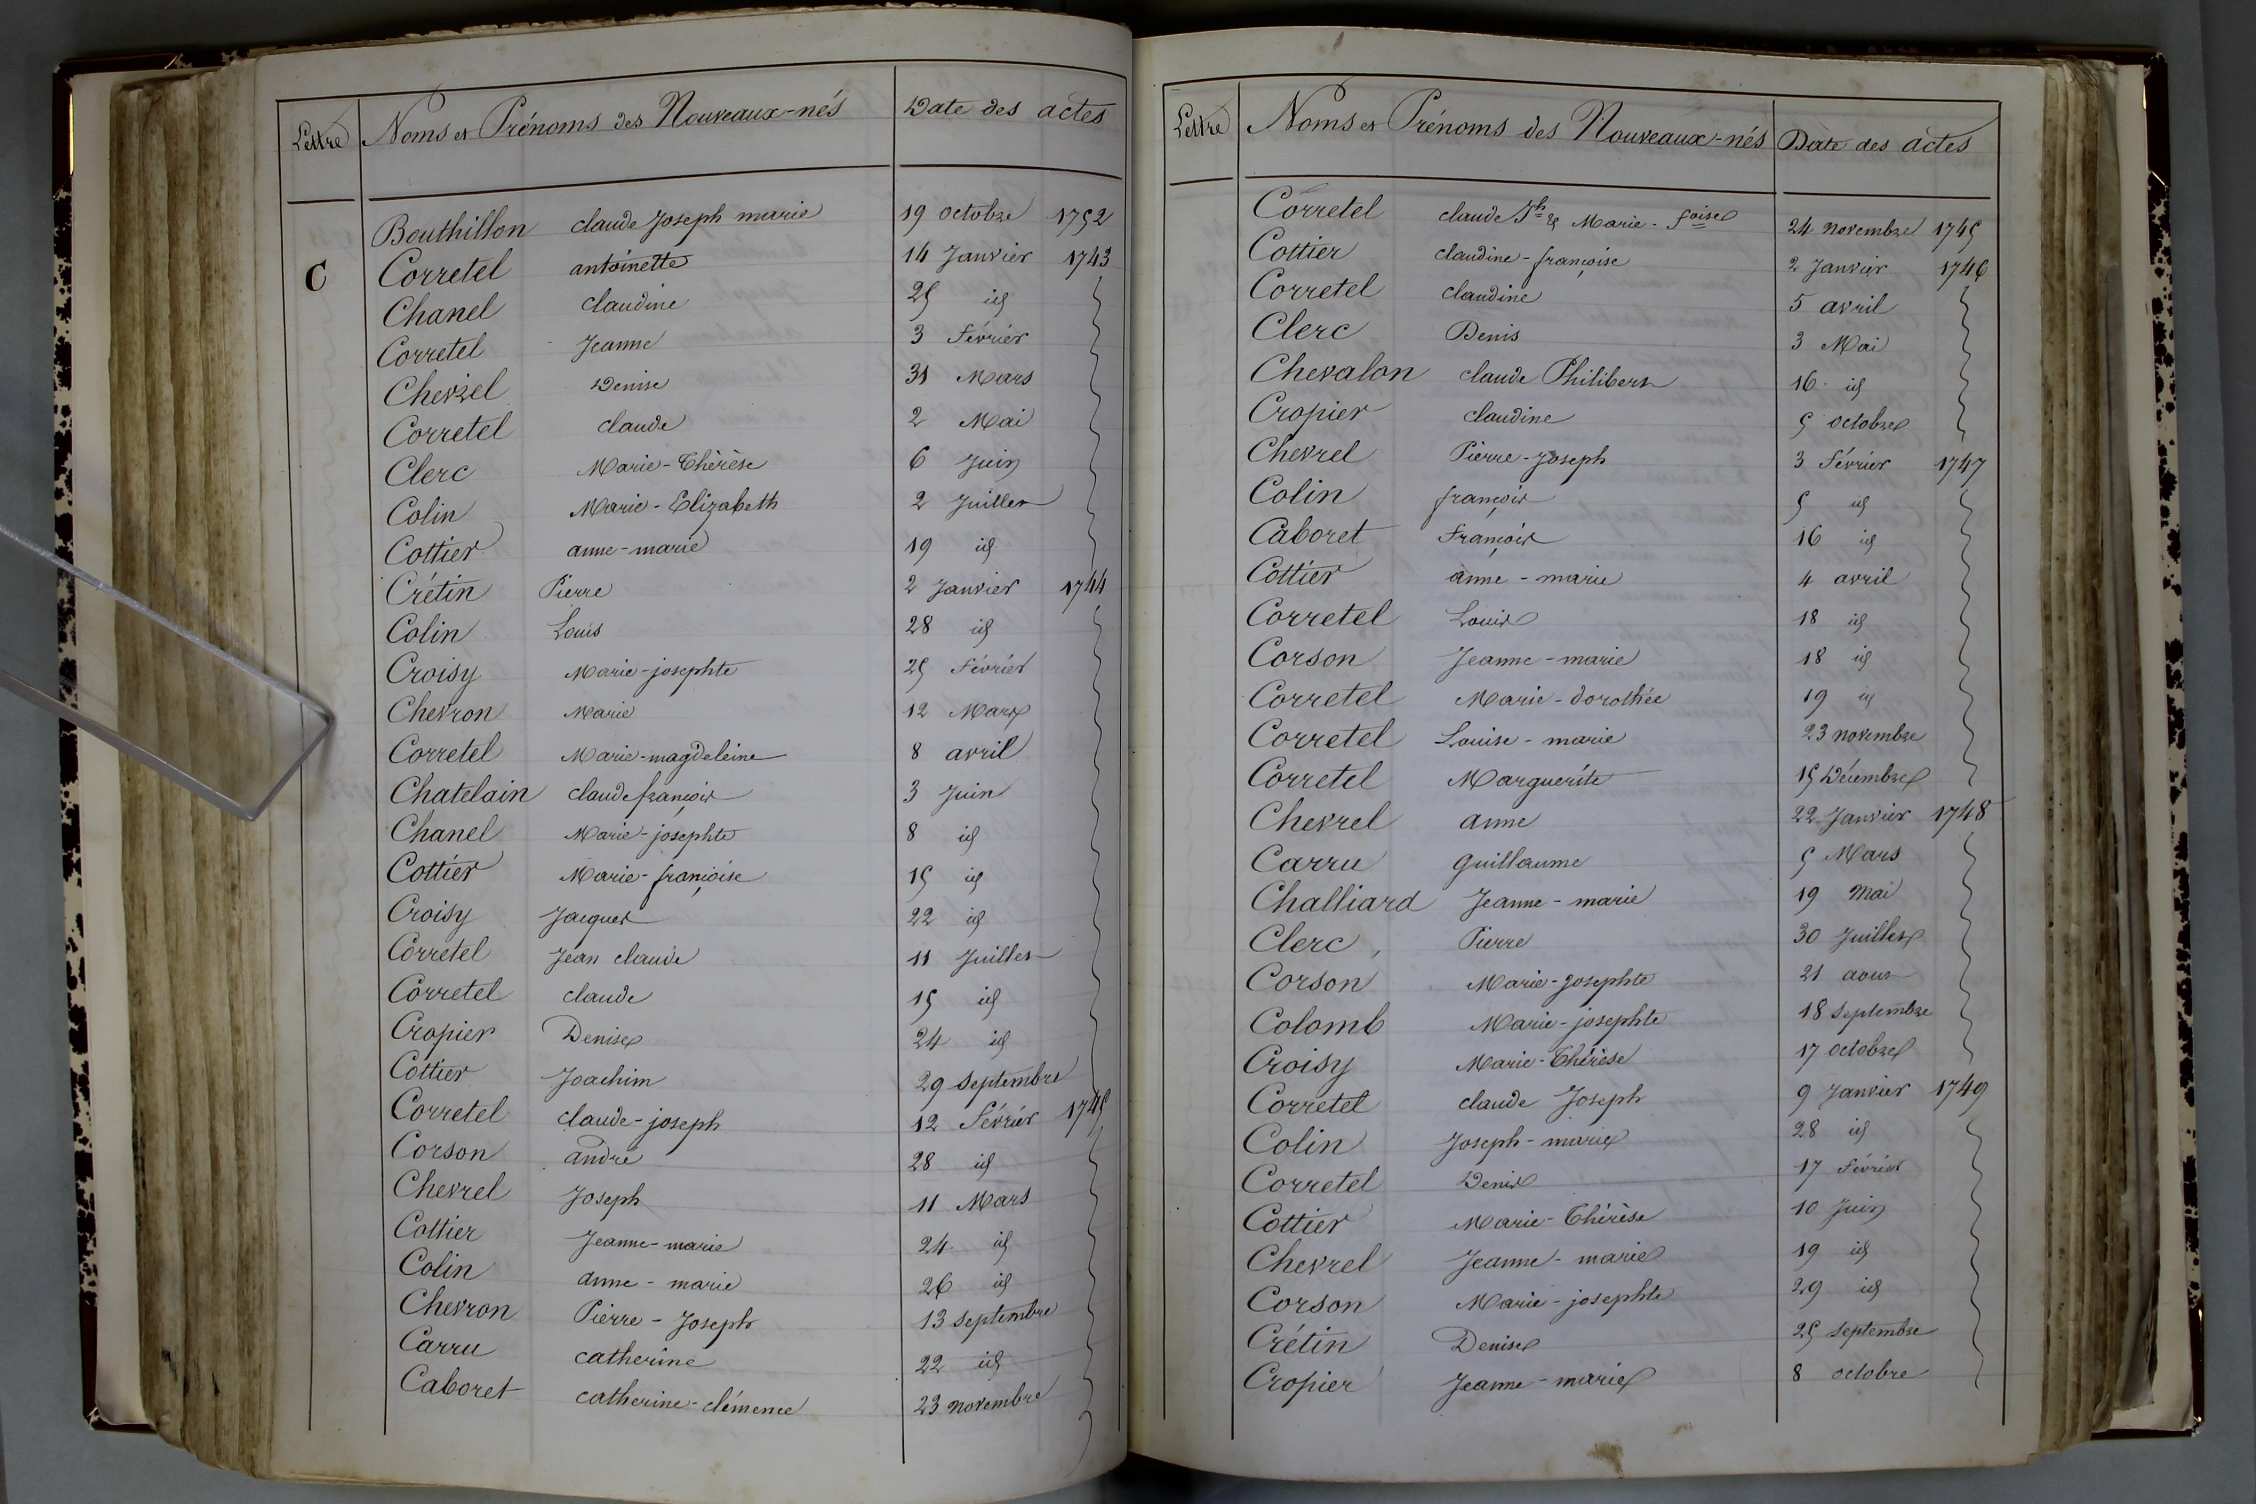 Lettre Noms et Prénoms des Nouveaux-nés Date des actes
Bouthillon claude Joseph marie 19 octobre 1752
C Corretel antoinette 14 Janvier 1743
Chanel claudine 25 id
Corretel Jeanne 3 Février
Chevrel Denise 31 Mars
Corretel claude 2 Mai
Clerc Marie-Thérèse 6 Juin
Colin Marie-Elizabeth 2 Juillet
Cottier anne-marie 19 id
Crétin Pierre 2 Janvier 1744
Colin Louis 28 id
Croisy Marie-josephte 25 Février
Chevron Marie 12 Mars
Corretel Marie-magdeleine 8 avril
Chatelain claude françois 3 Juin
Chanel Marie-josephte 8 id
Cottier Marie-françoise 15 id
Croisy Jacques 22 id
Corretel Jean claude 11 Juillet
Corretel claude 15 id
Cropier Denise 24 id
Cottier Joachim 29 septembre
Corretel claude-joseph 12 Février 1745
Corson andré 28 id
Chevrel Joseph 11 Mars
Cottier Jeanne-marie 24 id
Colin anne-marie 26 id
Chevron Pierre-Joseph 13 septembre
Carru catherine 22 id
Caboret catherine-clémence 23 novembre
Lettre Noms et Prénoms des Nouveaux-nés Date des actes
Corretel claude Jh & Marie-foise 24 novembre 1745
Cottier claudine-françoise 2 Janvier 1746
Corretel claudine 5 avril
Clerc Denis 3 Mai
Chevalon claude Philibert 16 id
Cropier claudine 5 octobre
Chevrel Pierre-Joseph 3 Février 1747
Colin françois 5 id
Caboret François 16 id
Cottier anne-marie 4 avril
Corretel Louis 18 id
Corson Jeanne-marie 18 id
Corretel Marie-dorothée 19 id
Corretel Louise-marie 23 novembre
Corretel Marguerite 15 Décembre
Chevrel anne 22 Janvier 1748
Carru guillaume 5 Mars
Challiard Jeanne-marie 19 Mai
Clerc Pierre 30 Juillet
Corson Marie-Josephte 21 aout
Colomb Marie-josephte 18 septembre
Croisy Marie-Thérèse 17 octobre
Corretel claude Joseph 9 Janvier 1749
Colin Joseph-marie 28 id
Corretel Denis 17 Février
Cottier Marie-Thérèse 10 Juin
Chevrel Jeanne-marie 19 id
Corson Marie-josephte 29 id
Crétin Denise 25 septembre
Cropier Jeanne-marie 8 octobre